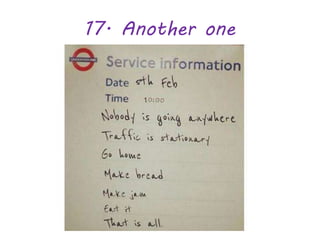 17. Another one
UNDERGROUND
Service information
Date 5th Feb
Time 10:00
Nobody is going anywhere
Traffic is stationary
Go home
Make bread
Make jam
Eat it
That is all.